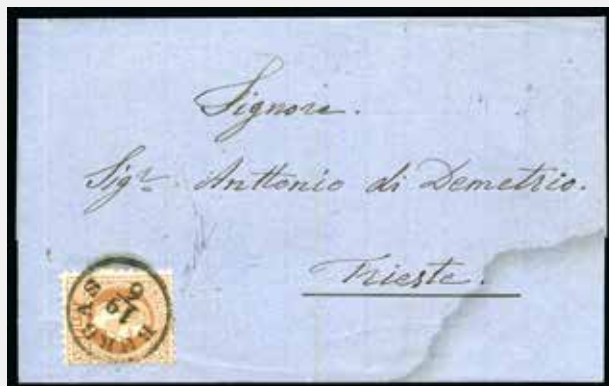 Signore.
Sigr. Anttonio di Demetrio.
Trieste.
BURGAS
19
6